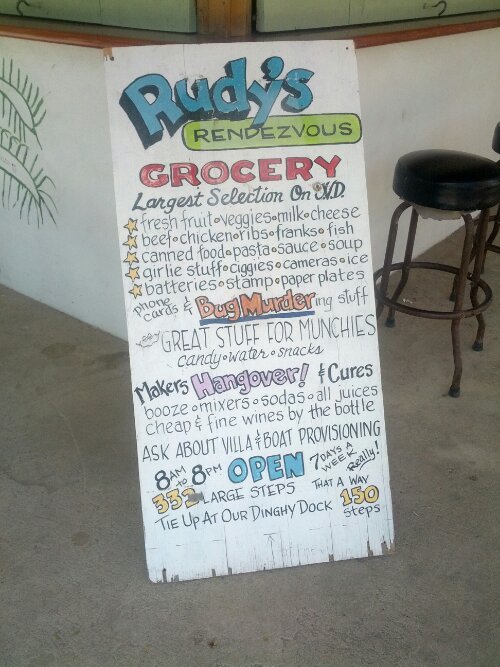 Rudy's
RENDEZVOUS
GROCERY
Largest Selection On J.V.D.
fresh fruit • veggies • milk • cheese
beef • chicken • ribs • franks • fish
canned food • pasta • sauce • soup
girlie stuff • ciggies • cameras • ice
batteries • stamp • paper plates
phone cards & Bug Murdering stuff
GREAT STUFF FOR MUNCHIES
candy • water • snacks
Makers Hangover! & Cures
booze • mixers • sodas • all juices
cheap & fine wines by the bottle
ASK ABOUT VILLA & BOAT PROVISIONING
8AM to 8PM OPEN 7 DAYS A WEEK Really!
332 LARGE STEPS THAT A WAY 150 steps
TIE UP AT OUR DINGHY DOCK